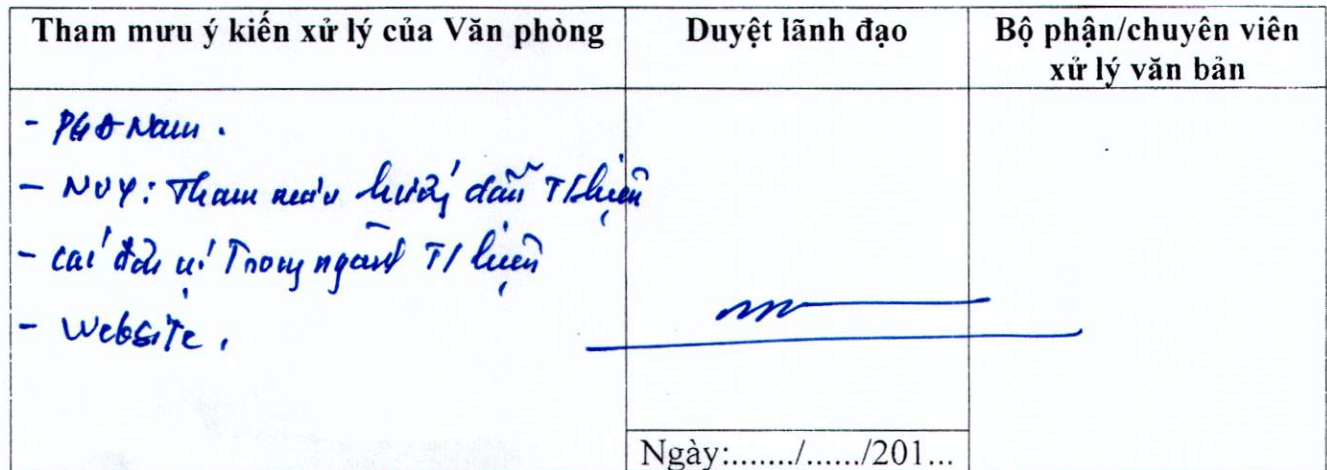 Tham mưu ý kiến xử lý của Văn phòng
Duyệt lãnh đạo
Bộ phận/chuyên viên
xử lý văn bản
- PGĐ Nam.
- NVY: Tham mưu hướng dẫn T/hiện
- Các đơn vị Trong ngành T/hiện
- Website.
Ngày:......./....../201...